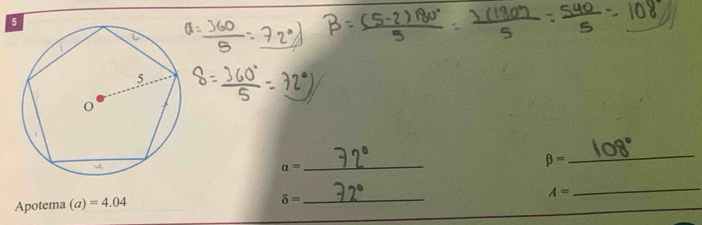 5
α = 360/5 = 72°
β = (5-2)180°/5 = 3(180°)/5 = 540/5 = 108°
δ = 360°/5 = 72°
5
O
α = 72°
β = 108°
Apotema (a) = 4.04
δ = 72°
A =